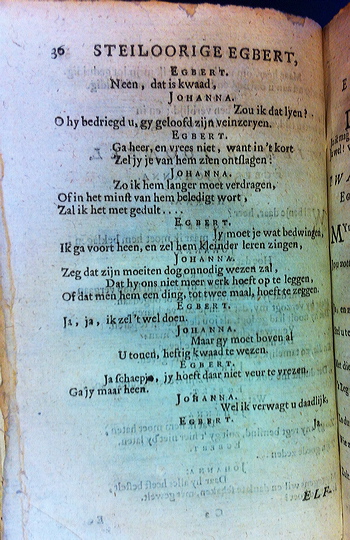 36 STEILOORIGE EGBERT,
EGBERT.
Neen, dat is kwaad,
JOHANNA.
Zou ik dat lyen?
O hy bedriegd u, gy geloofd zijn veinzeryen.
EGBERT.
Ga heer, en vrees niet, want in 't kort
Zel jy je van hem zien ontslagen:
JOHANNA.
Zo ik hem langer moet verdragen,
Of in het minst van hem beledigt wort,
Zal ik het met gedult....
EGBERT.
Jy moet je wat bedwingen,
Ik ga voort heen, en zel hem kleinder leren zingen,
JOHANNA.
Zeg dat zijn moeiten dog onnodig wezen zal,
Dat hy ons niet meer werk hoeft op te leggen,
Of dat men hem een ding, tot twee maal, hoeft te zeggen.
EGBERT.
Ja, ja, ik zel 't wel doen.
JOHANNA.
Maar gy moet boven al
U tonen, heftig kwaad te wezen.
EGBERT.
Ja schaepje, jy hoeft daar niet veur te vrezen.
Ga jy maar heen.
JOHANNA.
Wel ik verwagt u daadlijk,
EGBERT.
Ja,
ELF-